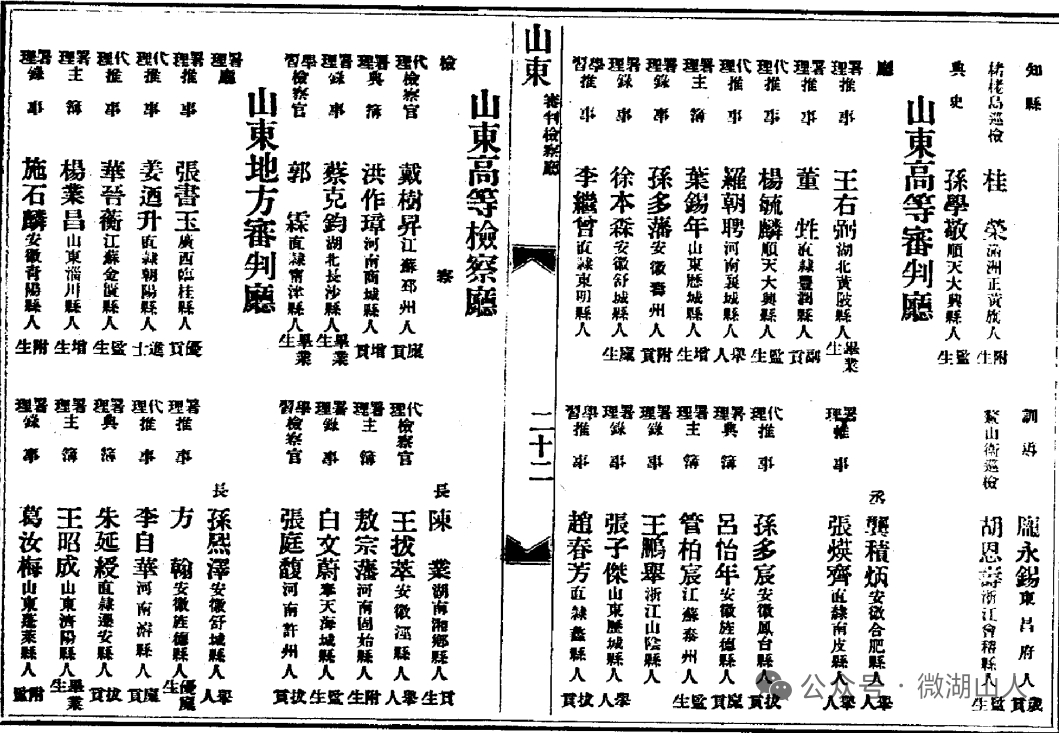 知縣 訓導 龐永錫 東昌府人 歲貢
楮栳島巡檢 桂榮 滿洲正黃旗人 附生 鰲山衛巡檢 胡恩壽 浙江會稽縣人 監生
典史 孫學敬 順天大興縣人 監生
山東高等審判廳
廳丞 龔積炳 安徽合肥縣人 舉人
署理推事 王右弼 湖北黃陂縣人 畢業生 署理推事 張煐齊 直隸南皮縣人 舉人
署理推事 董甡 直隸豐潤縣人 副貢
代理推事 楊毓麟 順天大興縣人 監生 代理推事 孫多宸 安徽鳳台縣人 拔貢
代理推事 羅朝聘 河南襄城縣人 舉人 署理典簿 呂怡年 安徽旌德縣人 廩貢
署理主簿 葉錫年 山東歷城縣人 增生 署理主簿 管柏宸 江蘇泰州人 監生
署理錄事 孫多藩 安徽壽州人 附貢 署理錄事 王鵬舉 浙江山陰縣人
署理錄事 徐本森 安徽舒城縣人 廩生 署理錄事 張子傑 山東歷城縣人 舉人
學習推事 李繼曾 直隸東明縣人 學習推事 趙春芳 直隸蠡縣人 拔貢
山東 審判檢察廳 二十二
山東高等檢察廳
檢察長 陳業 湖南湘鄉縣人 貢生
代理檢察官 戴樹昇 江蘇邳州人 廩貢 代理檢察官 王拔萃 安徽涇縣人 舉人
署理典簿 洪作璋 河南商城縣人 增貢 署理主簿 敖宗藩 河南固始縣人 附生
署理錄事 蔡克鈞 湖北長沙縣人 畢業生 署理錄事 白文蔚 奉天海城縣人 監生
學習檢察官 郭霖 直隸甯津縣人 畢業生 學習檢察官 張庭馥 河南許州人 拔貢
山東地方審判廳
署理廳長 孫熙澤 安徽舒城縣人 舉人
署理推事 張書玉 廣西臨桂縣人 優貢 署理推事 方翰 安徽旌德縣人 優廩生
代理推事 姜迺升 直隸朝陽縣人 進士 代理推事 李自華 河南濬縣人 廩貢
代理推事 華晉蘅 江蘇金匱縣人 監生 署理典簿 朱延綬 直隸遷安縣人 拔貢
署理主簿 楊業昌 山東淄川縣人 增生 署理主簿 王昭成 山東濟陽縣人 畢業生
署理錄事 施石麟 安徽青陽縣人 附生 署理錄事 葛汝梅 山東蓬萊縣人 附監
公众号·微湖山人